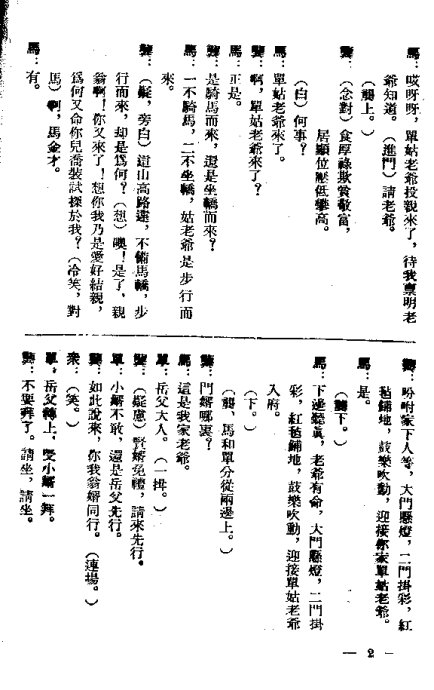 馬：哎呀呀，單姑老爺投親來了，待我禀明老
爺知道。（進門）請老爺。
（龔上。）
龔：（念對）食厚祿欺貧敬富，
居顯位壓低攀高。
（白）何事？
馬：單姑老爺來了。
龔：啊，單姑老爺來了？
馬：正是。
龔：是騎馬而來，還是坐轎而來？
馬：一不騎馬，二不坐轎，姑老爺是步行而
來。
龔：（疑，旁白）這山高路遠，不備馬轎，步
行而來，却是爲何？（想）噢！是了，親
翁啊！你又來了！想你我乃是愛好結親，
爲何又命你兒喬裝試探於我？（冷笑，對
馬）啊，馬金才。
馬：有。
龔：吩咐家下人等，大門懸燈，二門掛彩，紅
毡鋪地，鼓樂吹動，迎接你家單姑老爺。
馬：是。
（龔下。）
馬：下邊聽真，老爺有命，大門懸燈，二門掛
彩，紅毡鋪地，鼓樂吹動，迎接單姑老爺
入府。
（下。）
（龔、馬和單分從兩邊上。）
龔：門婿哪裏？
馬：這是我家老爺。
單：岳父大人。（一揖。）
龔：（疑慮）賢婿免禮，請來先行。
單：小婿不敢，還是岳父先行。
龔：如此說來，你我翁婿同行。（連場。）
衆：（笑。）
單：岳父轉上，受小婿一拜。
龔：不要拜了。請坐，請坐。
— 2 —